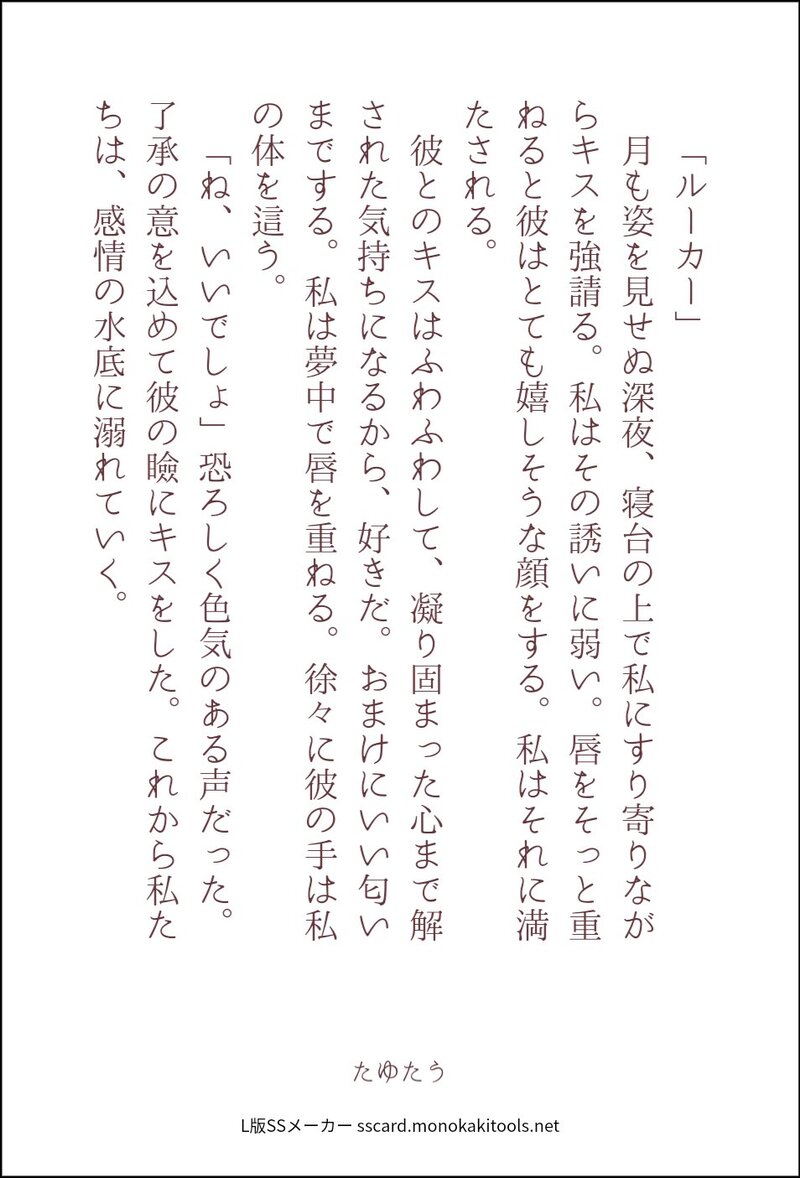 「ルーカー」
　月も姿を見せぬ深夜、寝台の上で私にすり寄りなが
らキスを強請る。私はその誘いに弱い。唇をそっと重
ねると彼はとても嬉しそうな顔をする。私はそれに満
たされる。
　彼とのキスはふわふわして、凝り固まった心まで解
された気持ちになるから、好きだ。おまけにいい匂い
までする。私は夢中で唇を重ねる。徐々に彼の手は私
の体を這う。
「ね、いいでしょ」恐ろしく色気のある声だった。
了承の意を込めて彼の瞼にキスをした。これから私た
ちは、感情の水底に溺れていく。
たゆたう
L版SSメーカー sscard.monokakitools.net